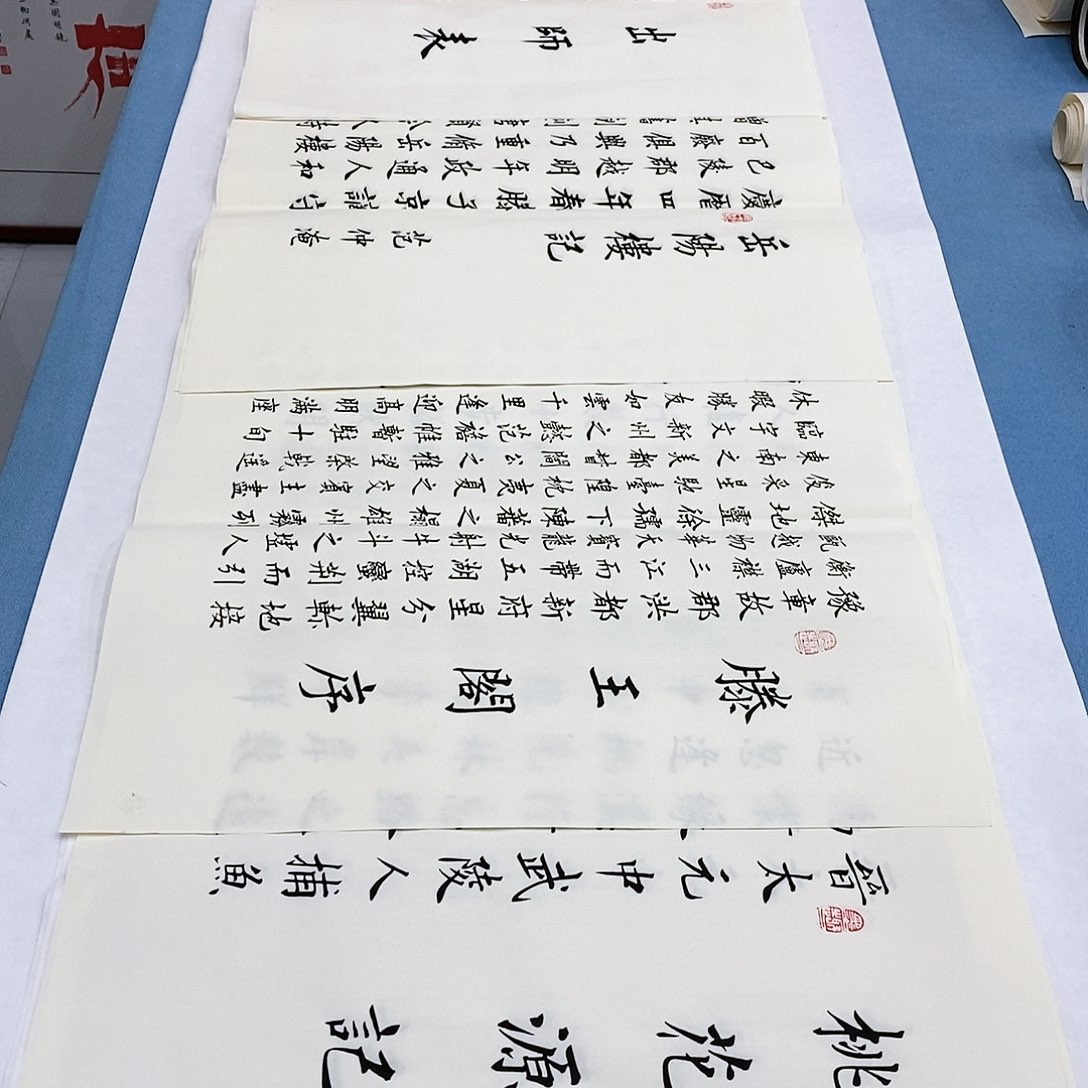 出師表
岳陽樓記
范仲淹
慶曆四年春滕子京謫守
巴陵郡越明年政通人和
百廢俱興乃重修岳陽樓
滕王閣序
豫章故郡洪都新府星分翼軫地接
衡廬襟三江而帶五湖控蠻荊而引
甌越物華天寶龍光射牛斗之墟人
傑地靈徐孺下陳蕃之榻雄州霧列
俊采星馳臺隍枕夷夏之交賓主盡
東南之美都督閻公之雅望棨戟遙
臨宇文新州之懿范襜帷暫駐十旬
休暇勝友如雲千里逢迎高朋滿座
桃花源記
晉太元中武陵人捕魚